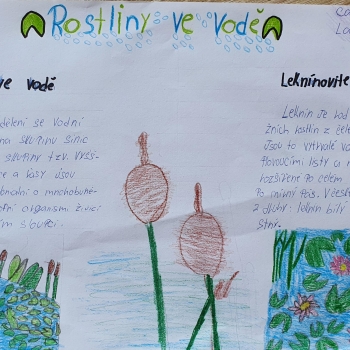 Rostliny ve vodě
ve vodě
dělení se vodní
na skupinu sinic
skupiny tzv. vyšš-
ce a řasy jsou
o mnohobuně-
organism. živíc
Leknínovité
Leknín je rod
žních rostlin z čele
Jsou to vytrvalé vo
plovoucími listy a
rozšířené po celém
Po mírný pás. V česk
2 druhy: leknín bílý